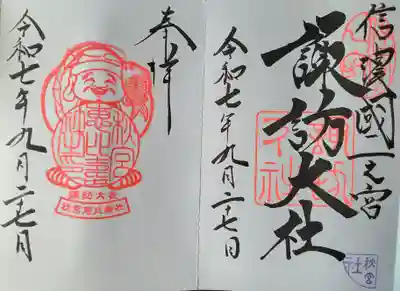 信濃國一之宮
諏訪大社
令和七年九月二十七日
秋宮
社
奉拝
諏訪大社
令和七年九月二十七日